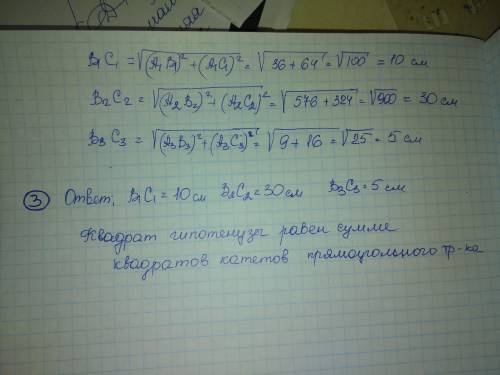 B₁C₁ = √(A₁B₁)² + (A₁C₁)² = √36 + 64 = √100 = 10 см
B₂C₂ = √(A₂B₂)² + (A₂C₂)² = √576 + 324 = √900 = 30 см
B₃C₃ = √(A₃B₃)² + (A₃C₃)² = √9 + 16 = √25 = 5 см
③ Ответ: B₁C₁ = 10 см B₂C₂ = 30 см B₃C₃ = 5 см
Квадрат гипотенузы равен сумме
квадратов катетов прямоугольного тр-ка